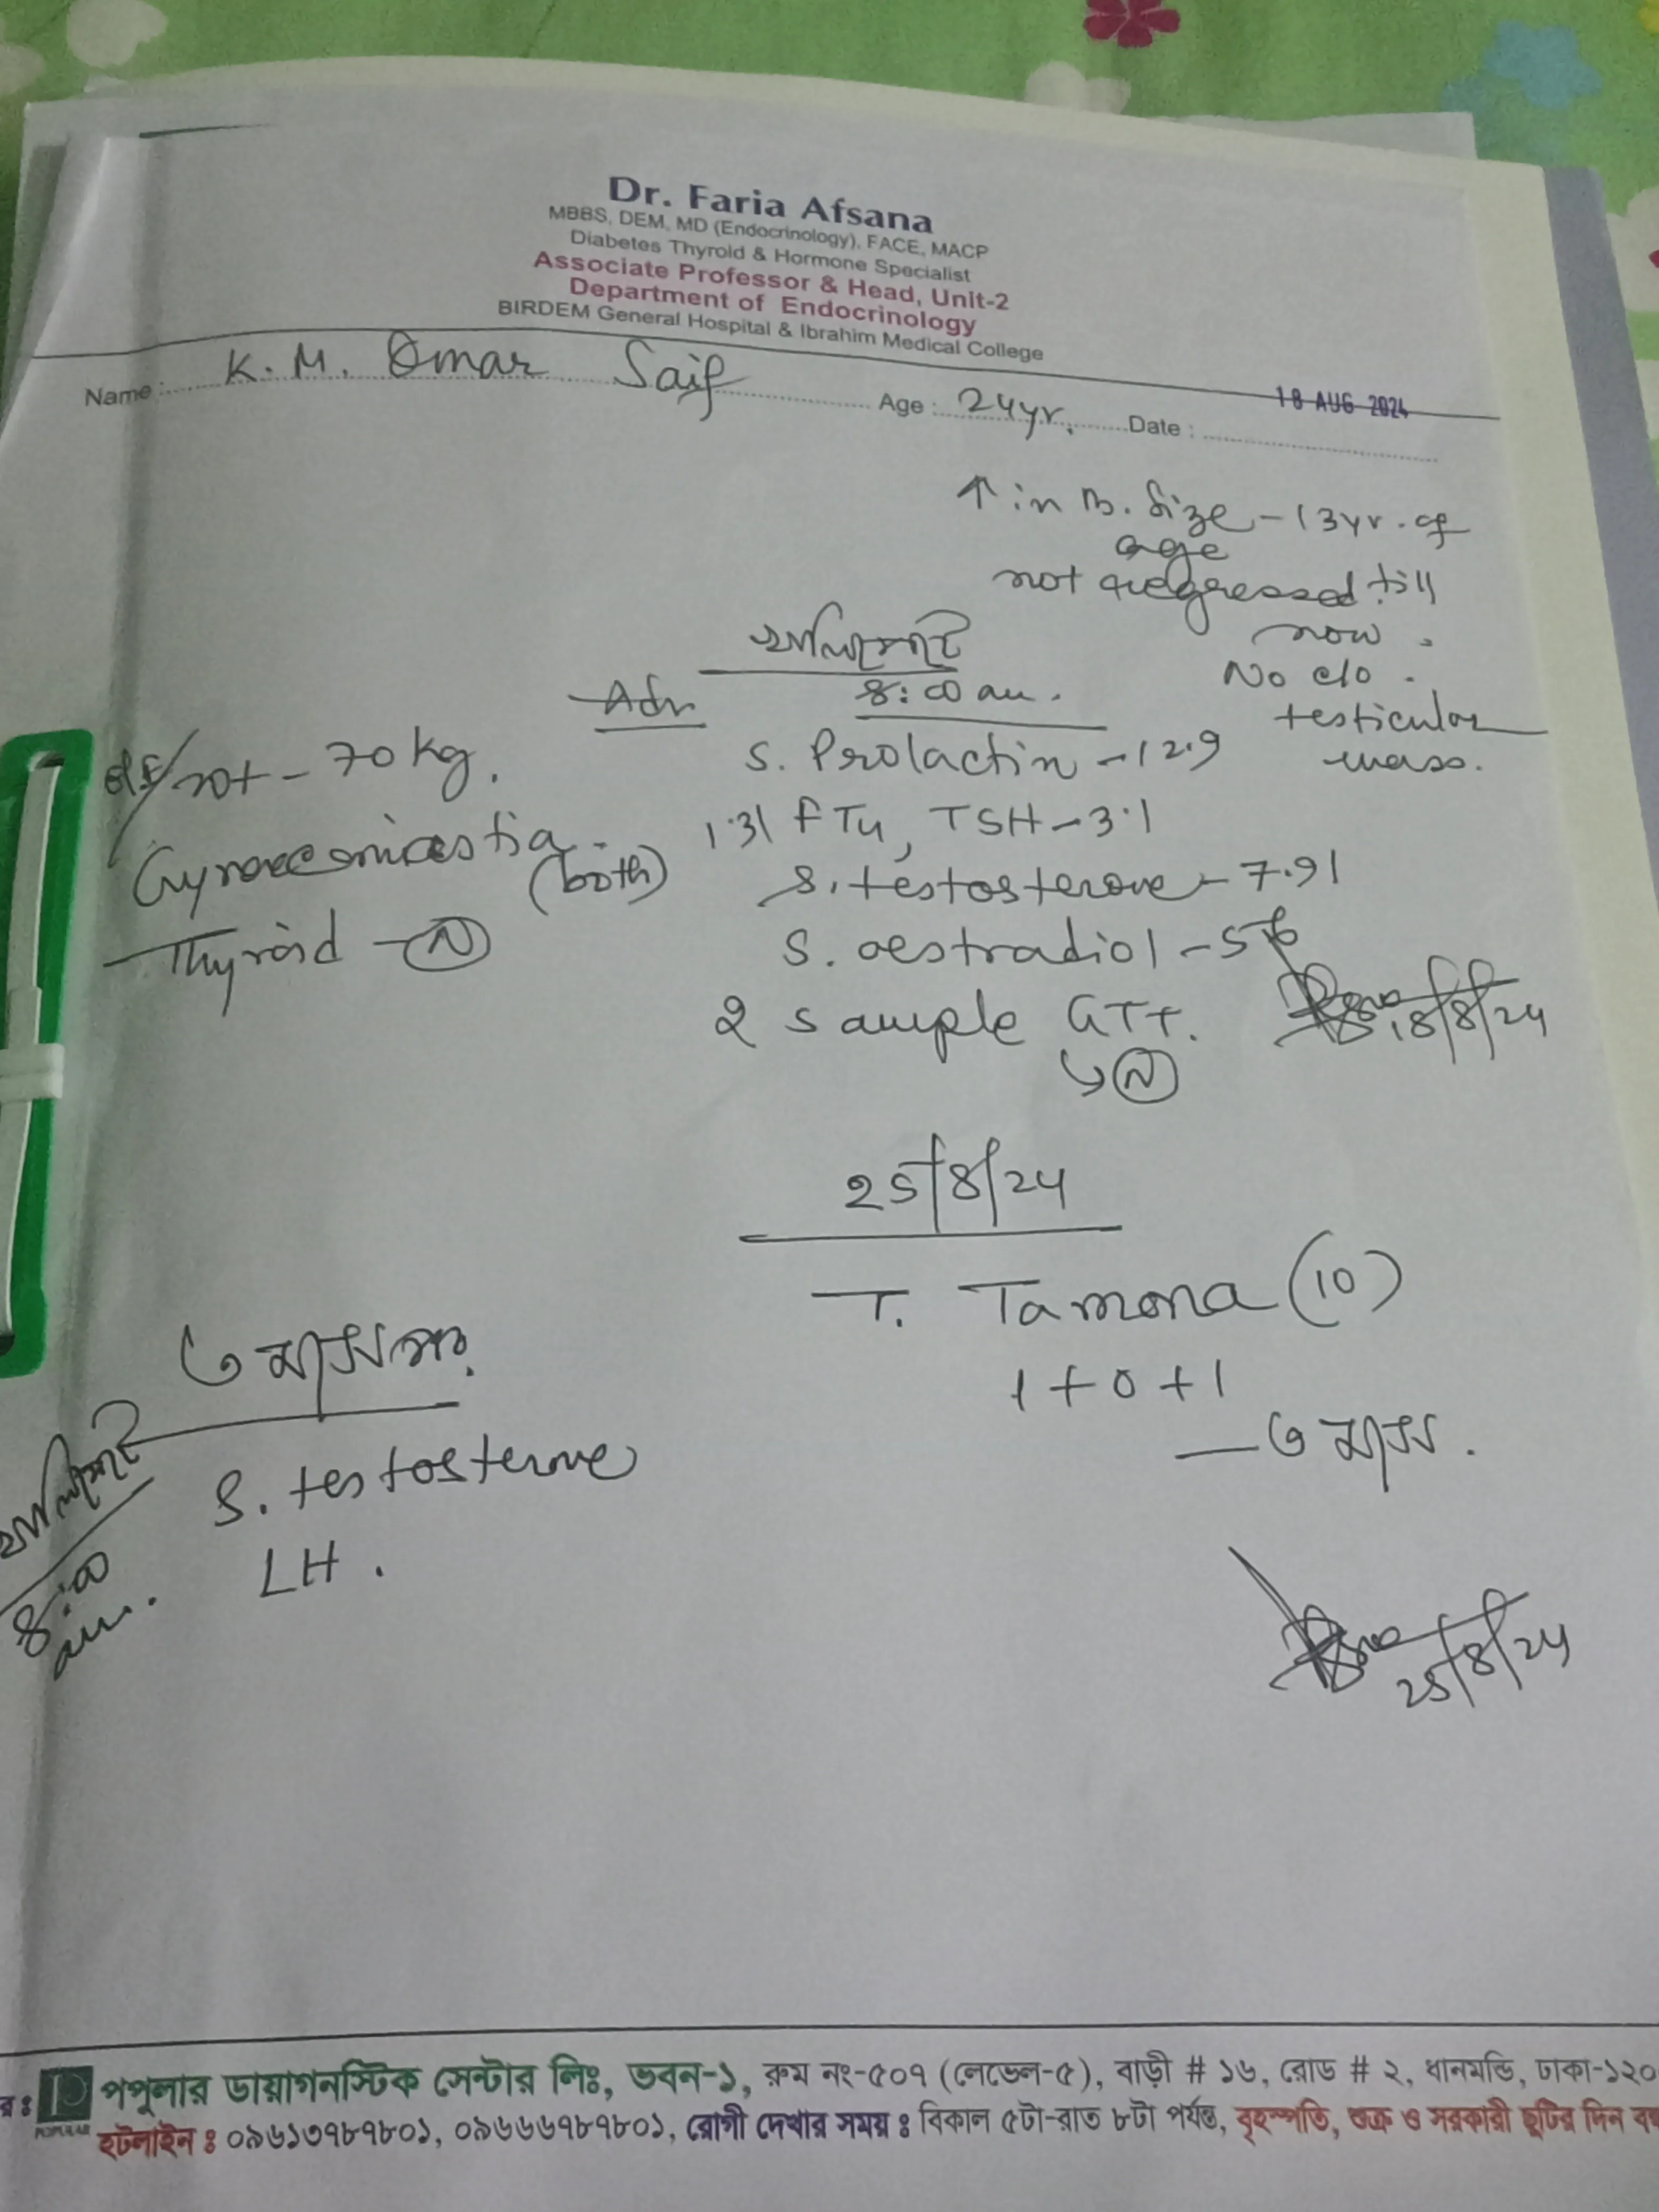 Dr. Faria Afsana
MBBS, DEM, MD (Endocrinology), FACE, MACP
Diabetes Thyroid & Hormone Specialist
Associate Professor & Head, Unit-2
Department of Endocrinology
BIRDEM General Hospital & Ibrahim Medical College
Name : K. M. Omar Saif Age : 24yr. Date : 18 AUG 2024
↑ in B. Size - 13yr. of
age
not regressed till
now.
No c/o.
testicular
mass.
খালিপেটে
Adv 8:00 am.
S. Prolactin - 12.9
1.31 FT4, TSH - 3.1
S. testosterone - 7.91
S. oestradiol -
2 sample GTT.
↳ (N)
18/8/24
wt - 70 kg.
Gynaecomastia
(both)
Thyroid - (N)
25/8/24
T. Tamona (10)
1 + 0 + 1
— ৩ মাস.
৩ মাস পর.
খালিপেটে
8:00
am.
S. testosterone
LH.
25/8/24
র ঃ পপুলার ডায়াগনস্টিক সেন্টার লিঃ, ভবন-১, রুম নং-৫০৭ (লেভেল-৫), বাড়ী # ১৬, রোড # ২, ধানমন্ডি, ঢাকা-১২০
POPULAR
হটলাইন ঃ ০৯৬১৩৭৮৭৮০১, ০৯৬৬৬৭৮৭৮০১, রোগী দেখার সময় ঃ বিকাল ৫টা-রাত ৮টা পর্যন্ত, বৃহস্পতি, শুক্র ও সরকারী ছুটির দিন